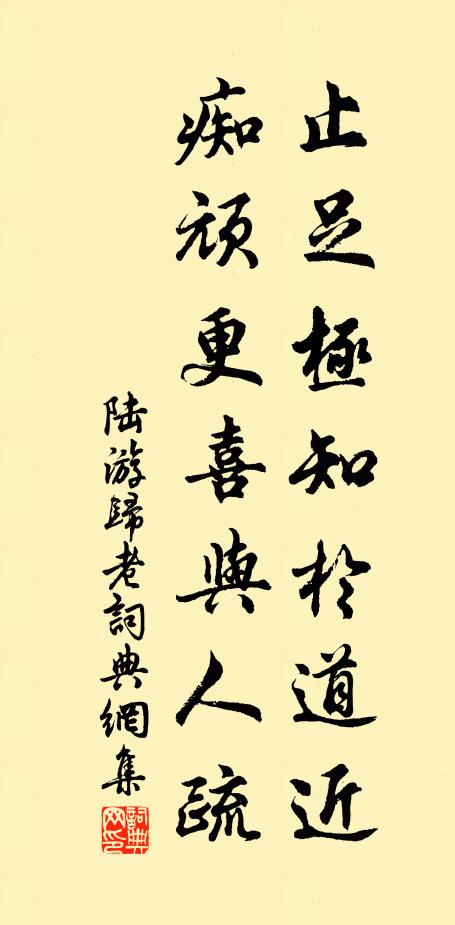 止足極知於道近
痴頑更喜與人疏
陸游歸老詞典網集
詞典網印